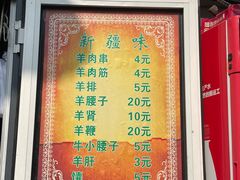 新疆味
羊肉串 4元
羊肉筋 4元
羊排 5元
羊腰子 20元
羊肾 10元
羊鞭 20元
牛小腰子 5元
羊肝 3元
馕 5元